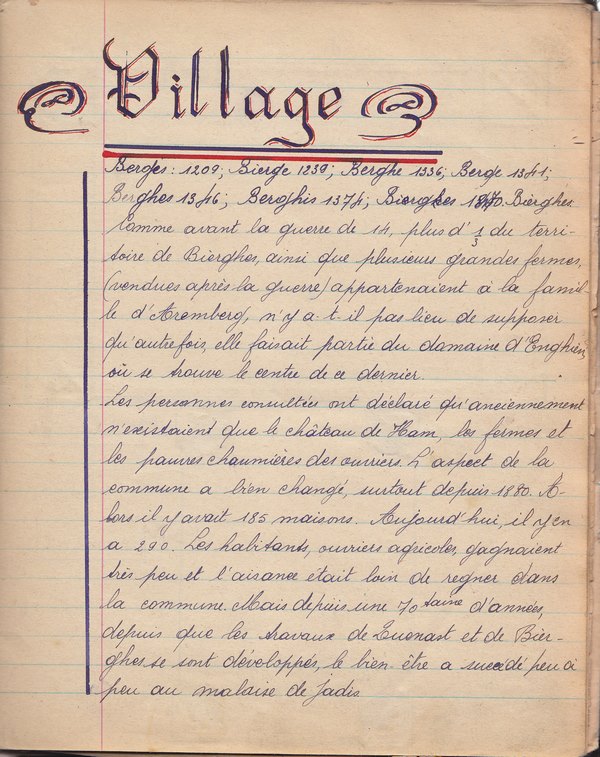 Village
Berges: 1209; Bierge 1239; Berghe 1336; Berge 1341;
Berghes 1346; Berghis 1374; Bierghes 1870. Bierghes
Comme avant la guerre de 14, plus d'1/3 du terri-
toire de Bierghes, ainsi que plusieurs grandes fermes,
(vendues après la guerre) appartenaient à la famil
le d'Aremberg, n'y a-t-il pas lieu de supposer
qu'autrefois, elle faisait partie du domaine d'Enghien
où se trouve le centre de ce dernier.
Les personnes consultées ont déclaré qu'anciennement
n'existaient que le château de Ham, les fermes et
les pauvres chaumières des ouvriers. L'aspect de la
commune a bien changé, surtout depuis 1880. A-
lors il y avait 185 maisons. Aujourd'hui, il y en
a 290. Les habitants, ouvriers agricoles, gagnaient
très peu et l'aisance était loin de regner dans
la commune. Mais depuis une 70taine d'années,
depuis que les travaux de Quenast et de Bier-
ghes se sont développés, le bien-être a succédé peu à
peu au malaise de jadis